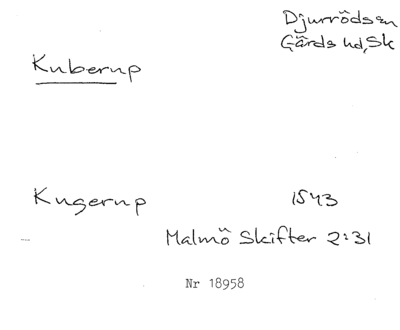 Djurröds sn
Gärds hd, Sk
Kuberup
Kugerup 1543
Malmö Skifter 2:31
Nr 18958